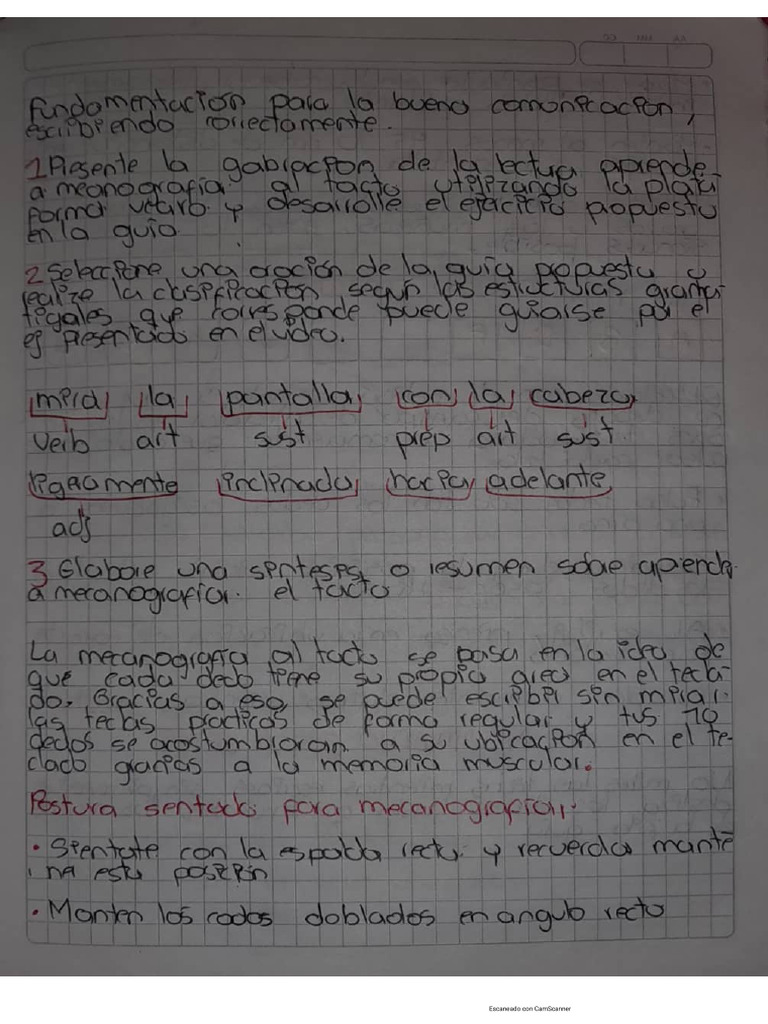 Fundamentacion para la buena comonicacion,
escribiendo correctamente.
1 Presente la gabracion de la lectura aprende-
a meanografia al tacto utilizando la plata
forma vitaro y desarrolle el ejercicio propuesto
en la guia
2 Seleccione una oración de la guia propuesta y
realize la clasificacion segun las estructuras grama
tigales que corresponde puede guiarse por el
ej presentado en el video.
mira la pantalla con la cabeza
verb art sust prep art sust.
ligeramente inclinada hacia adelante
adj
3 Elabore una sintesis o resumen sobre aprenda
a mecanografiar el tacto
La mecanografia al tacto se basa en la idea de
que cada dedo tiene su propia area en el tecla-
do. Gracias a eso se puede escribir sin mirar
las teclas practicas de forma regular y tus 10
dedos se acostumbraran a su ubicacion en el te-
clado gracias a la memoria muscular.
Postura sentada para mecanografiar:
• Sientate con la espalda recta y recuerda mante
ner esta posicion
• Manten los codos doblados en angulo recto
Escaneado con CamScanner